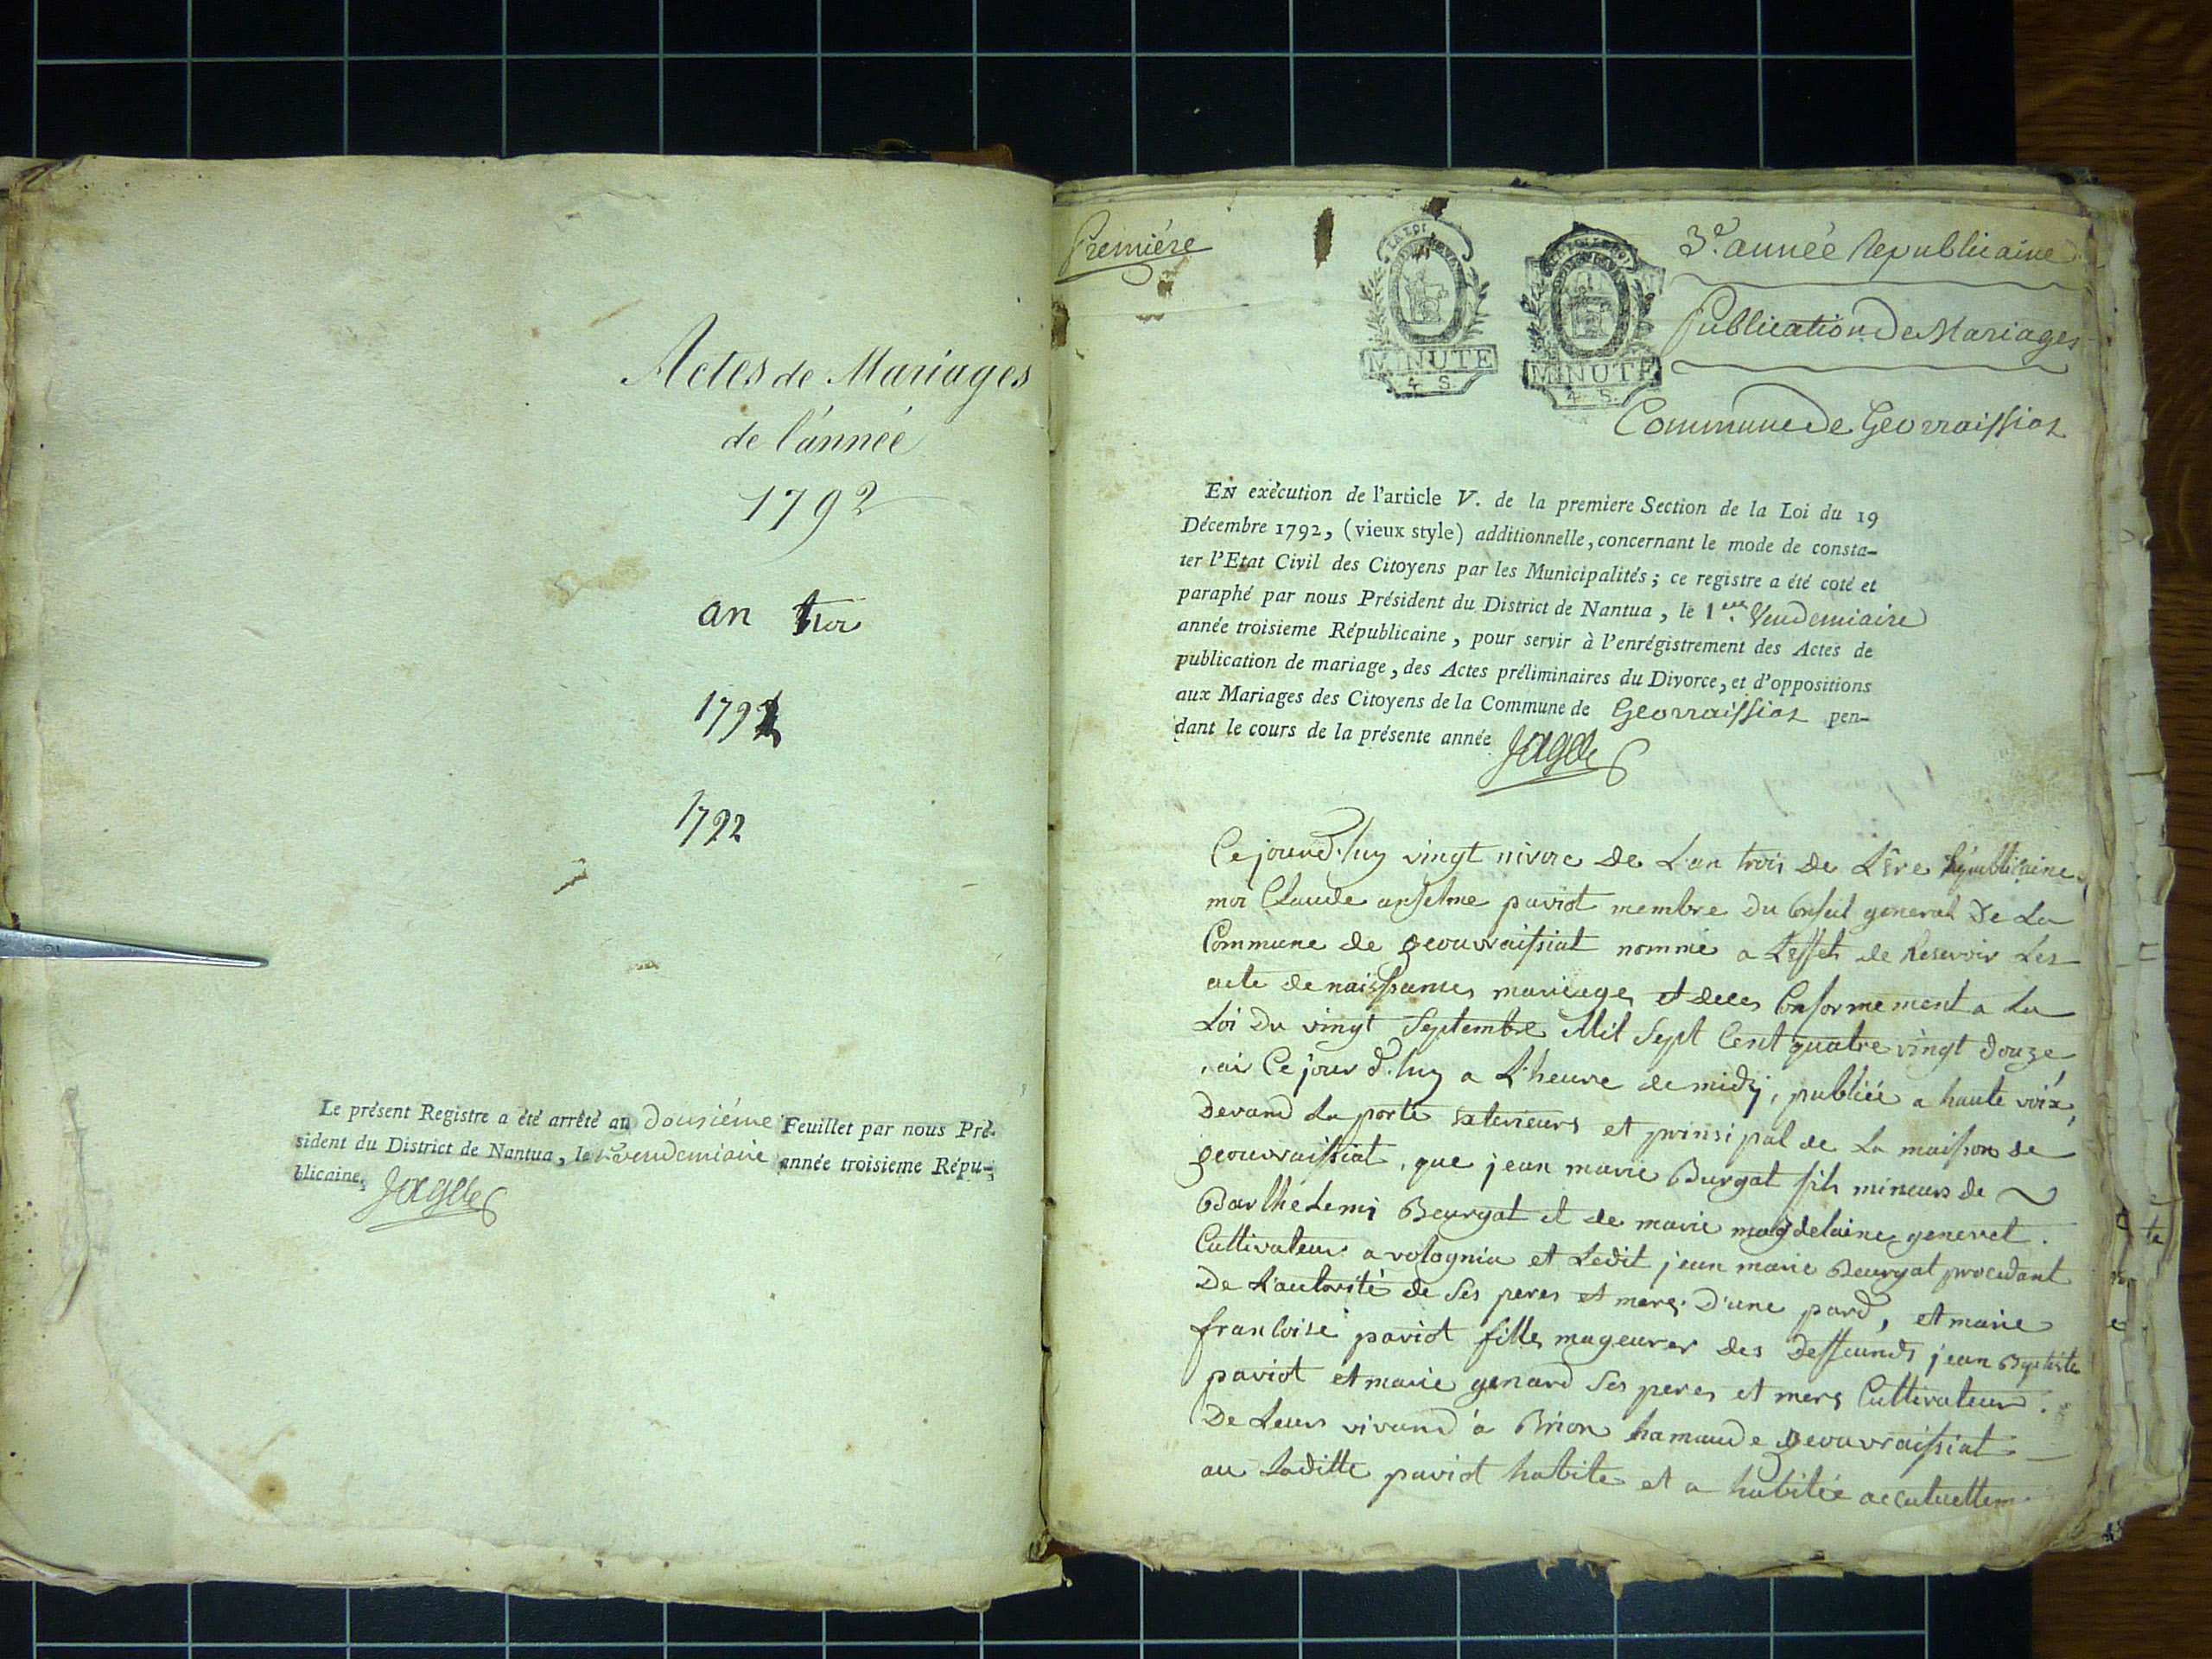 Actes de Mariages
de l'année
1792
an 1er
1792
1792
Le présent Registre a été arrêté au Dousiéme Feuillet par nous Pré-
sident du District de Nantua, le 1er Vendemiaire année troisieme Répu-
blicaine.
Premiére
LA LOI
MINUTE
4 S.
LA LOI
MINUTE
4 S.
3e. année Republicaine
Publication De Mariages
Commune De Geovraissiat
EN exécution de l'article V. de la premiere Section de la Loi du 19
Décembre 1792, (vieux style) additionnelle, concernant le mode de consta-
ter l'Etat Civil des Citoyens par les Municipalités ; ce registre a été coté et
paraphé par nous Président du District de Nantua, le 1er. Vendemiaire
année troisieme Républicaine, pour servir à l'enrégistrement des Actes de
publication de mariage, des Actes préliminaires du Divorce, et d'oppositions
aux Mariages des Citoyens de la Commune de Geovraissiat pen-
dant le cours de la présente année
Ce jourd'huy vingt nivoze de L'an trois de L'ère Républicaine
moi Claude anselme paviot membre Du Conseil general De La
Commune de geouvraissiat nommé a L'effet de Resevoir Les
acte de naissances mariages et deces Conformement a La
Loi Du vingt Septembre Mil Sept Cent quatre vingt douze,
ai Ce jour d'huy a L'heure de midy, publiée a haute voix,
Devand La porte Exterieurs et prinsipal de La maison de
geouvraissiat, que jean marie Burgat fils mineurs de
Barthelemi Beurgat et de marie magdelaine genevet.
Cultivateur a volognia et Ledit jean marie Beurgat procedant
De L'autorité de Ses peres et mere. D'une pard, et marie
francoise paviot fille mageurer des Deffeunds jean Baptiste
paviot et marie genard Ses peres et mere Cultivateur.
De Leurs vivand à Brion hamaud e geouvraissiat
au Laditte paviot habite et a habitée accutuellem